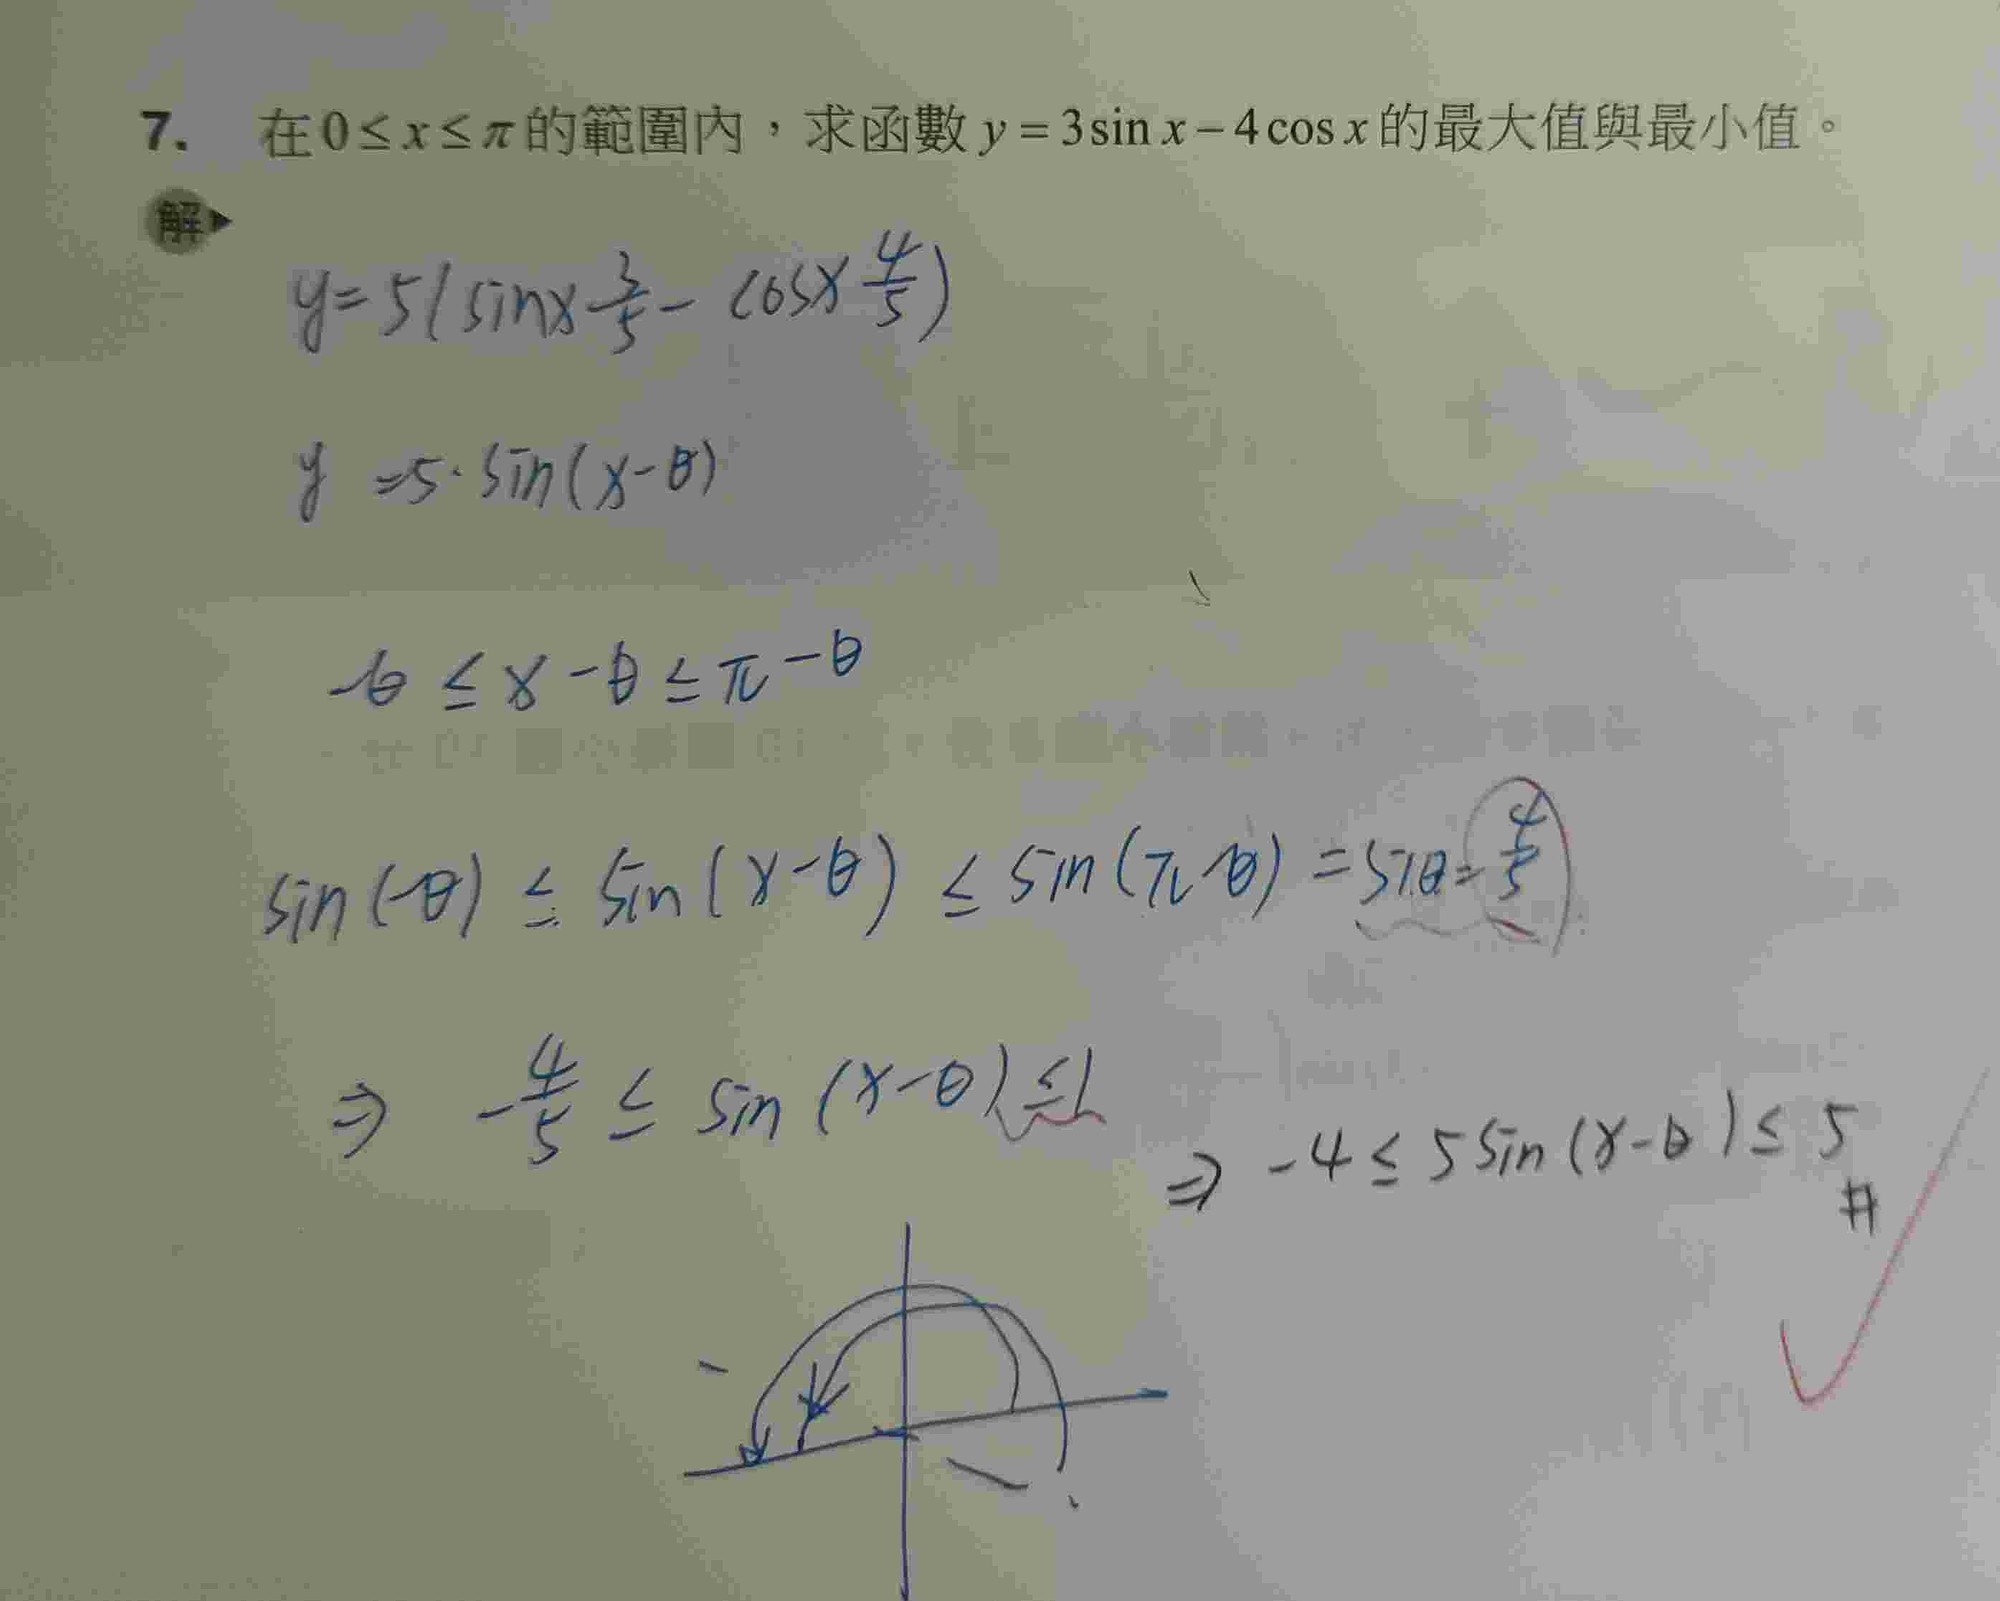 7. 在0≤x≤π的範圍內，求函數y=3sin x−4cos x的最大值與最小值。
解
y=5(sinx 3/5 − cosx 4/5)
y =5·sin(x−θ)
−θ ≤ x−θ ≤ π−θ
sin(−θ) ≤ sin(x−θ) ≤ sin(π−θ) = sinθ = 4/5
⇒ −4/5 ≤ sin(x−θ) ≤ 1
⇒ −4 ≤ 5sin(x−θ) ≤ 5 #